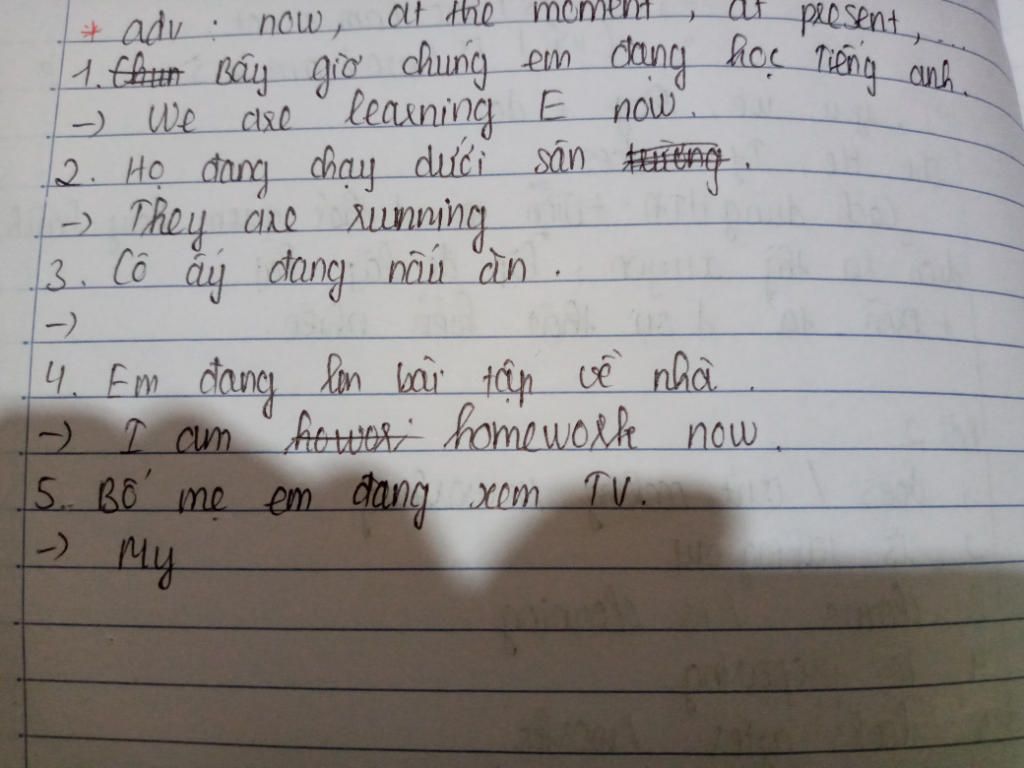 * adv : now, at the moment, at present,...
1. Chun Bây giờ chúng em đang học Tiếng anh.
-> We are learning E now.
2. Họ đang chạy dưới sân trường.
-> They are running
3. Cô ấy đang nấu ăn.
->
4. Em đang làm bài tập về nhà.
-> I am homework now.
5. Bố mẹ em đang xem TV.
-> My